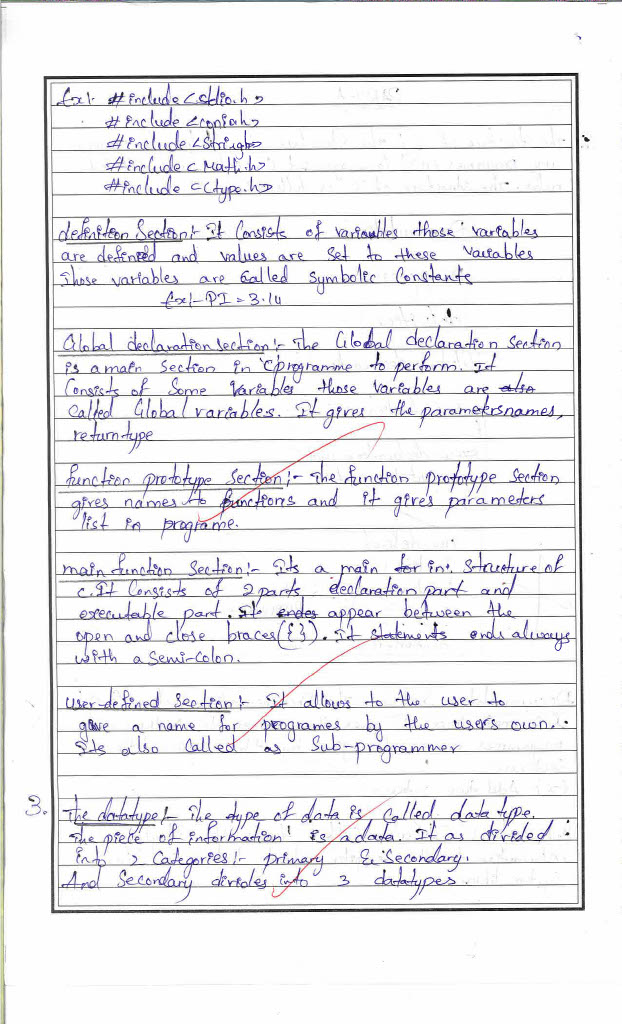 Ex:- #include <stdio.h>
#include <conio.h>
#include <String.h>
#include < Math.h>
#include <Ctype.h>
definition Section:- It Consists of variables those variables
are defined and values are Set to these Variables
Those variables are Called Symbolic Constants
Ex:- PI = 3.14
Global declaration section:- The Global declaration Section
is a main Section in 'C' programme to perform. It
Consists of Some Variables those Variables are also
Called Global variables. It gives the parametersnames,
return type
function prototype Section:- The function prototype Section
gives names to functions and it gives parameters
list in programe.
main function Section:- Its a main for in Structure of
C. It Consists of 2 parts declaration part and
executable part. It endes appear between the
open and close braces({ }). It statements ends always
with a Semi-colon.
User-defined Section:- It allows to the user to
gave a name for programes by the users own.
Its also Called as Sub-programmer
3. The datatype:- The type of data is Called data type.
The piece of information is a data. It as divided
into 2 Categories:- primary & Secondary.
And Secondary divides into 3 datatypes.